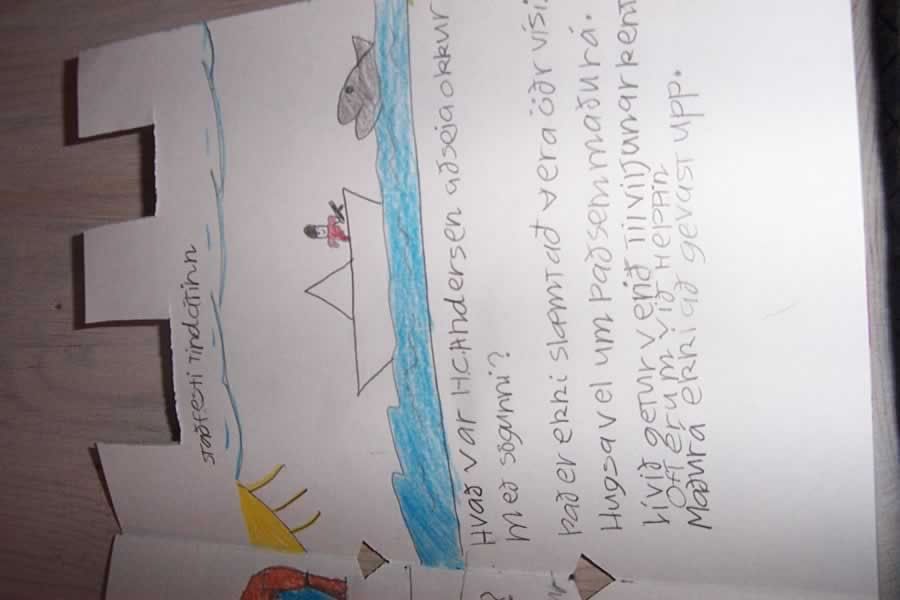 staðfesti Tindátinn
Hvað var H.C.Andersen að seja okkur
með sögunni?
Það er ekki slæmt að vera öðrvísi.
Hugsa vel um það sem maður á.
Lívið getur verið til vijumarkent
Oft erum við Heppin
Maður á ekki að gevast upp.